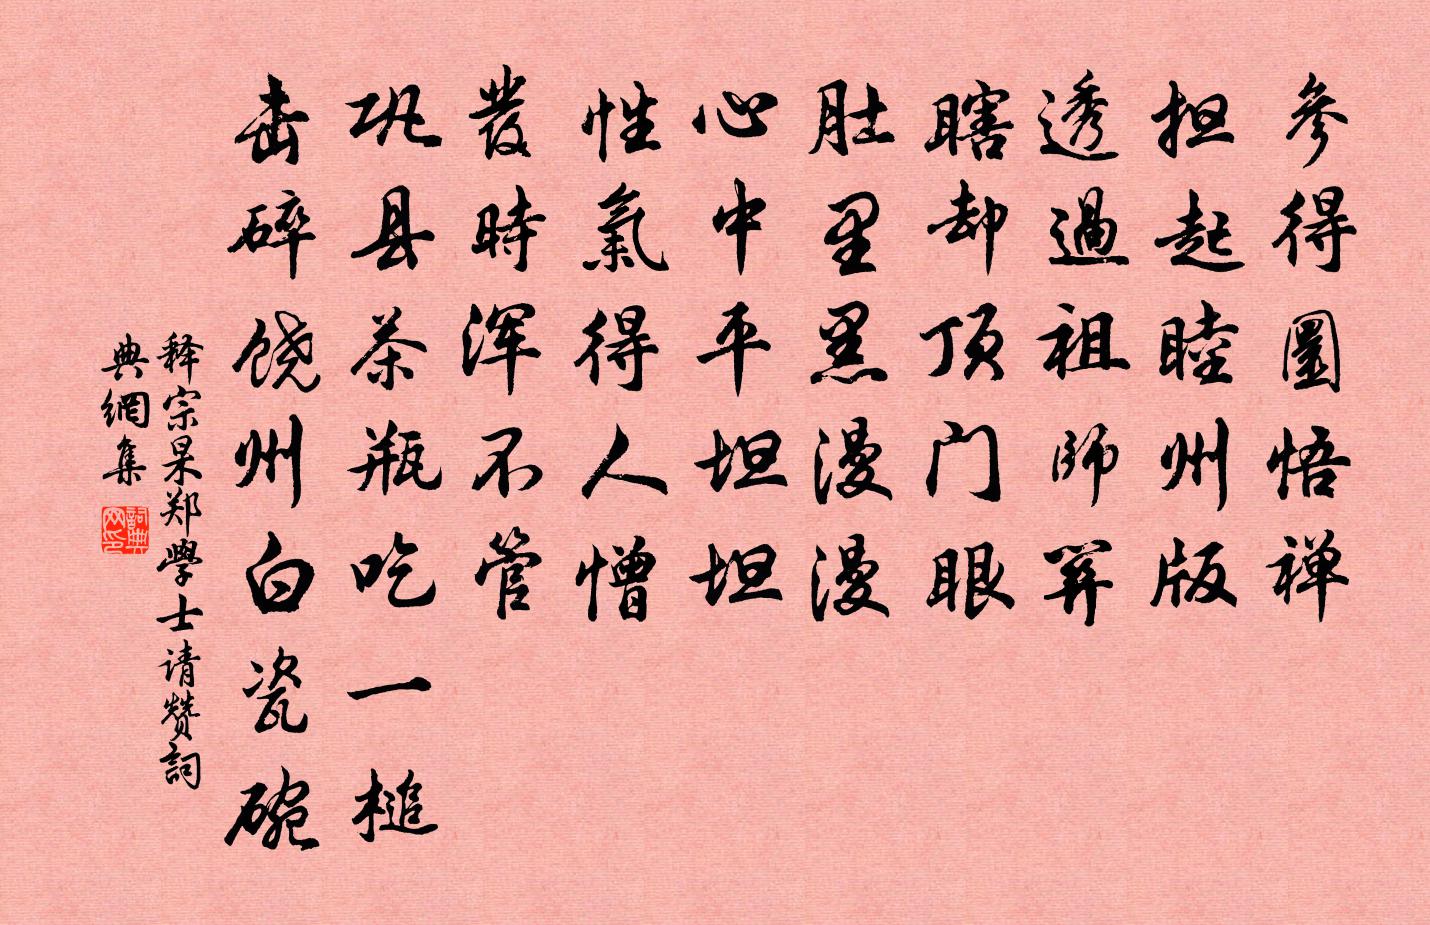 参得圜悟禅
担起睦州版
透過祖师关
瞎却顶门眼
肚里黑漫漫
心中平坦坦
性氣得人憎
發時浑不管
巩县茶瓶吃一槌
击碎饶州白瓷碗
释宗杲郑學士请赞詞
典網集
詞典
网印